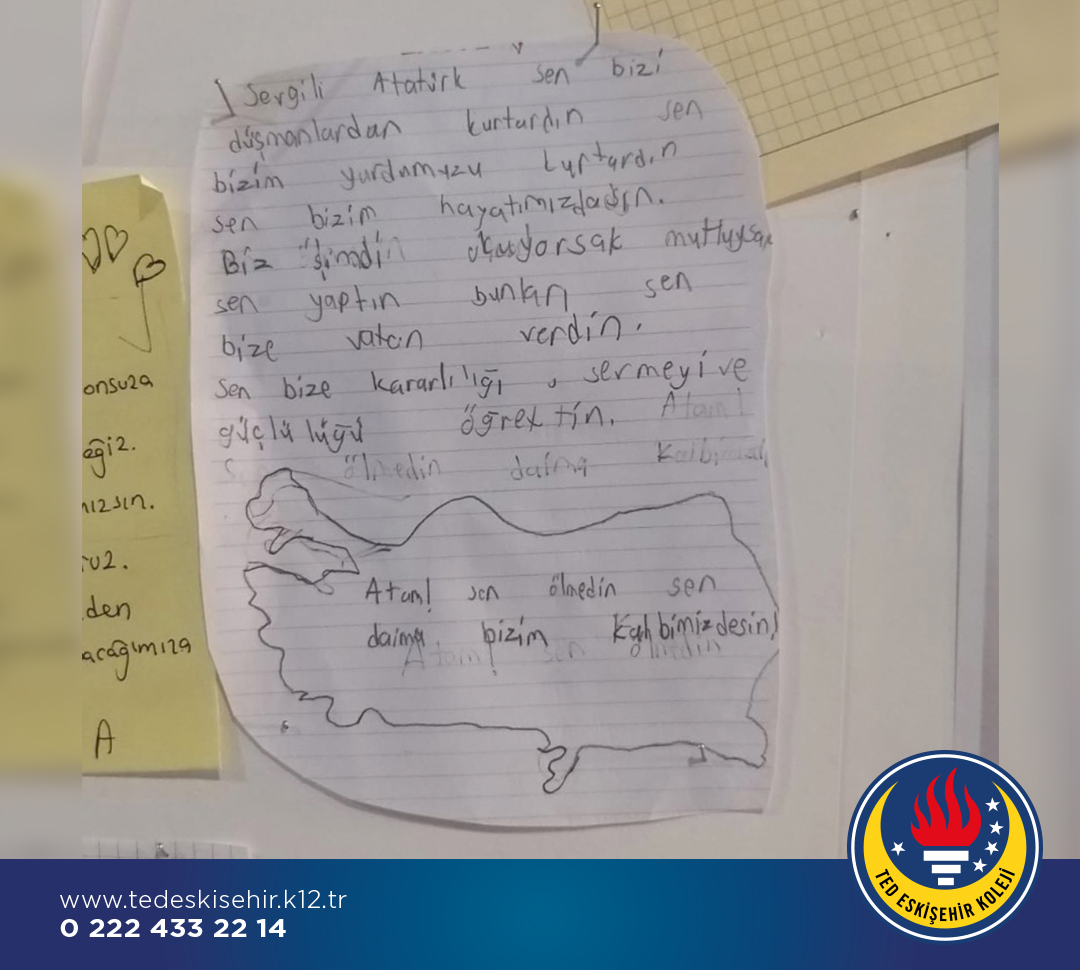 Sevgili Atatürk sen bizi
düşmanlardan kurtardın sen
bizim yurdumuzu kurtardın
sen bizim hayatımızdasın.
Biz şimdi okuyorsak mutluysak
sen yaptın bunları sen
bize vatan verdin.
Sen bize kararlılığı, sermeyi ve
güçlü lüğü öğrettin. Atam!
ölmedin daima
Atam! sen ölmedin sen
daima bizim kalbimizdesin!
Atam! sen ölmedin
onsuza
eğiz.
mızsın.
ruz.
den
acağımıza
A
www.tedeskisehir.k12.tr
0 222 433 22 14
TED ESKİŞEHİR KOLEJİ